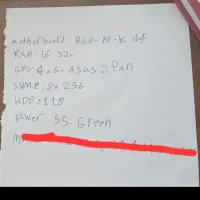 Motherboard B60-M-K d4
RAM: 16 32-
GPU: 4060- Asus 2 Fan
SSM.2: 2n 256
HDD: 1TB
Power 55- Green